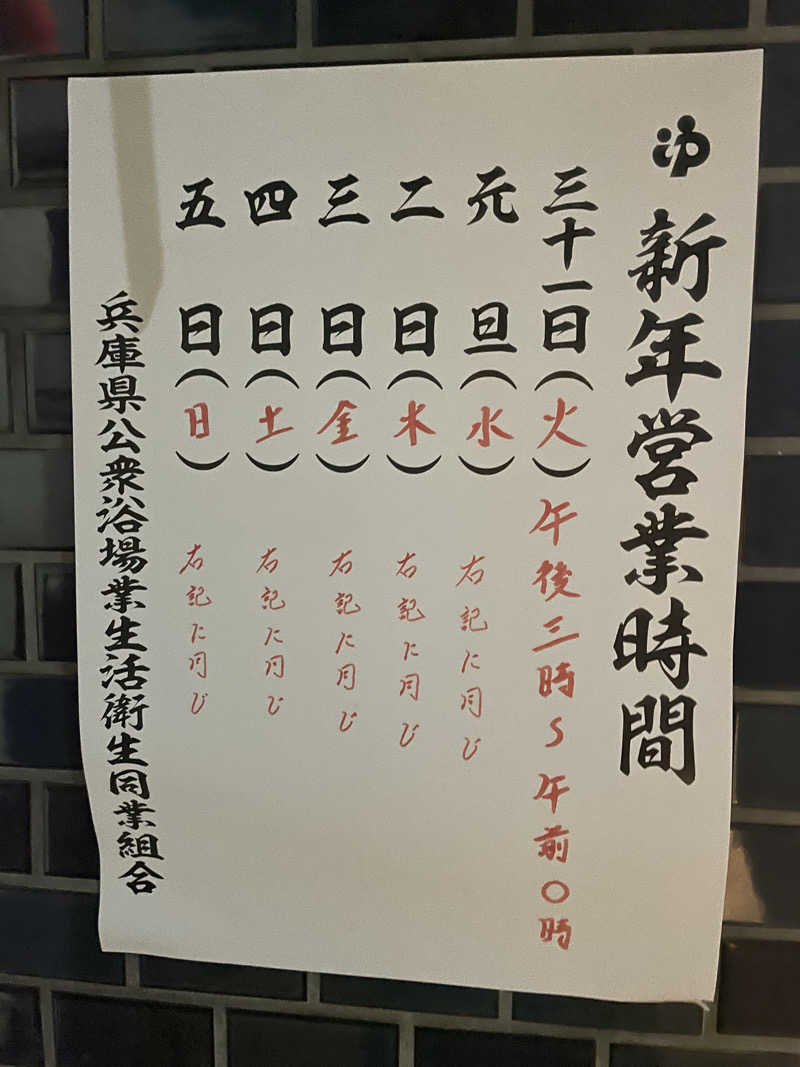 ゆ
新年営業時間
三十一日(火)午後三時〜午前〇時
元旦(水)右記に同じ
二日(木)右記に同じ
三日(金)右記に同じ
四日(土)右記に同じ
五日(日)右記に同じ
兵庫県公衆浴場業生活衛生同業組合